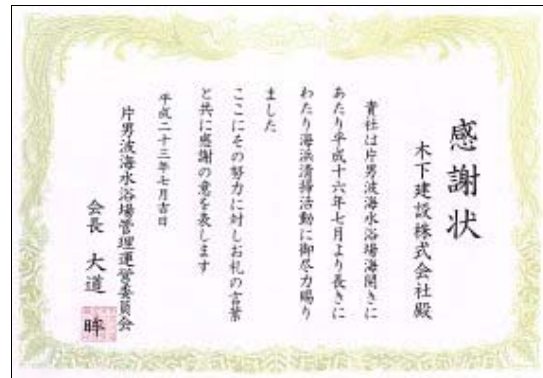 感謝状
木下建設株式会社殿
貴社は片男波海水浴場海開きに
あたり平成十六年七月より長きに
わたり海浜清掃活動に御尽力賜り
ました
ここにその努力に対しお礼の言葉
と共に感謝の意を表します
平成二十三年七月吉日
片男波海水浴場管理運営委員会
会長 大道